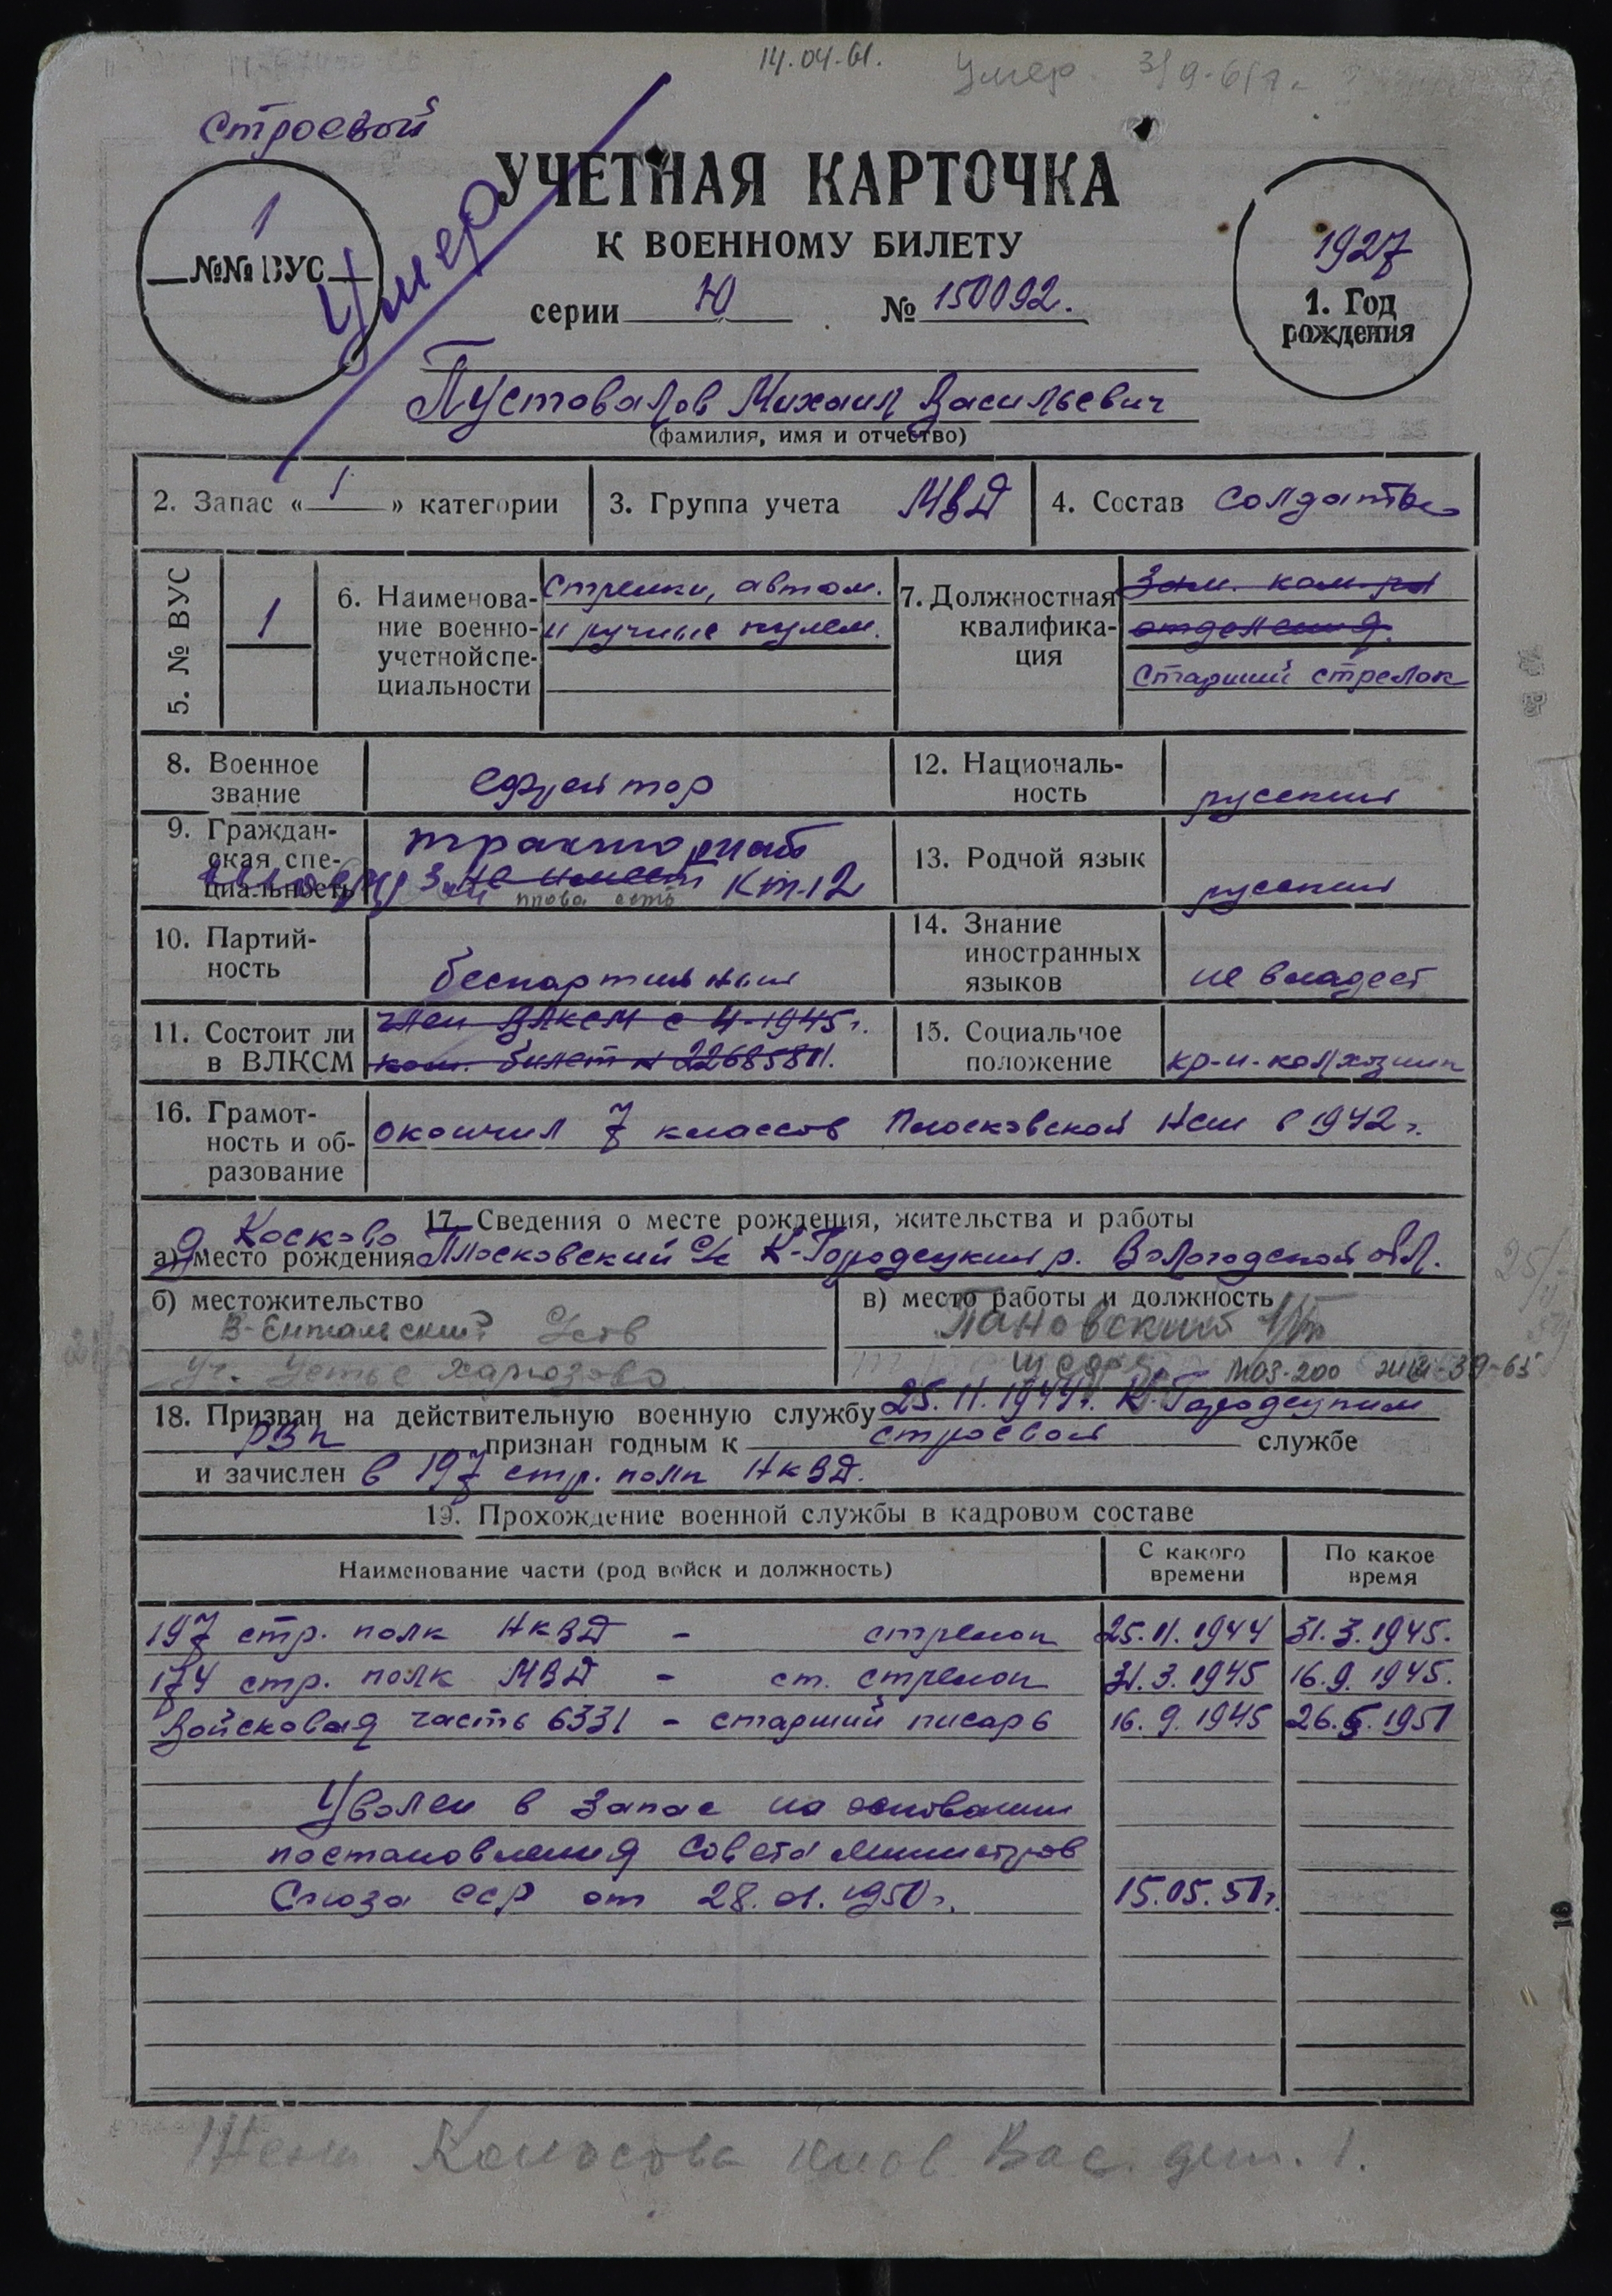 14.04.61. Умер 3/9-61г.
Строевой
УЧЕТНАЯ КАРТОЧКА
К ВОЕННОМУ БИЛЕТУ
1
№№ ВУС
Умер
серии Ю № 150092.
1927
1. Год
рождения
Пустовалов Михаил Васильевич
(фамилия, имя и отчество)
2. Запас « 1 » категории
3. Группа учета МВД
4. Состав солдаты
5. № ВУС
1
6. Наименова-
ние военно-
учетной спе-
циальности
Стрелки, автом.
и ручные пулем.
7. Должностная
квалифика-
ция
Зам. ком-ра
отделения.
Старший стрелок
8. Военное
звание
ефрейтор
12. Националь-
ность
русский
9. Граждан-
ская спе-
циальность
не имеет Кт-12
права есть
13. Родной язык
русский
10. Партий-
ность
беспартийный
14. Знание
иностранных
языков
не владеет
11. Состоит ли
в ВЛКСМ
член ВЛКСМ с 4-1945г.
ком. билет №
15. Социальное
положение
кр-н-колхозник
16. Грамот-
ность и об-
разование
окончил 7 классов Плосковской Нсш в 1942 г.
17. Сведения о месте рождения, жительства и работы
д Косково
а) место рождения Плосковский с/с К-Городецкий р. Вологодской обл.
б) местожительство
уч. Устье Харюзово
в) место работы и должность
Пановский
18. Призван на действительную военную службу 25.11.1944г. К-Городецким
РВК признан годным к строевой службе
и зачислен в 197 стр. полк НКВД.
19. Прохождение военной службы в кадровом составе
Наименование части (род войск и должность)
С какого
времени
По какое
время
197 стр. полк НКВД - стрелок 25.11.1944 31.3.1945.
174 стр. полк МВД - ст. стрелок 31.3.1945 16.9.1945.
Войсковая часть 6331 - старший писарь 16.9.1945 26.5.1951
Уволен в запас на основании
постановления Совета министров
Союза ССР от 28.01.1950г. 15.05.51г.
16
Жена Колосова Вас. дет. 1.